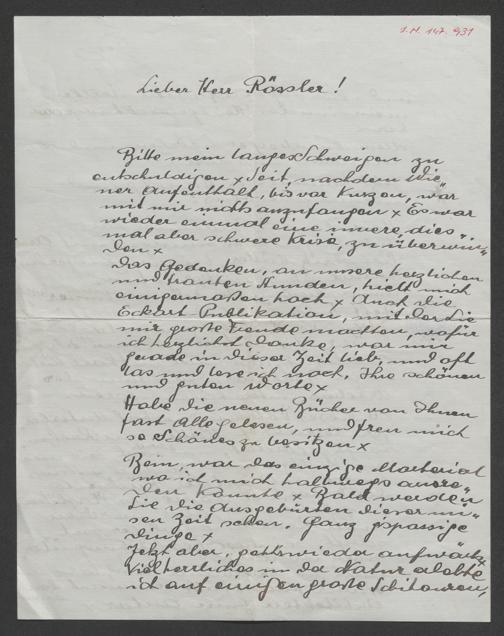 I.N. 147.931
Lieber Herr Rössler!
Bitte mein langes Schweigen zu
entschuldigen x Seit, nachdem Wie„
ner Aufenthalt, bis vor Kurzen, war
mit mir nichts anzufangen x Es war
wieder einmal eine innere, dies„
mal aber schwere Krise, zu überwin„
den x
Das Gedenken, an unsere herzlichen
und trauten Stunden, hielt mich
einigermaßen hoch x Auch die
Eckart Publikation, mit der Sie
mir große Freude machten, wofür
ich herzlichst danke, war mir
gerade in dieser Zeit lieb, und oft
las und lese ich noch, Ihre schönen
und guten Worte x
Habe die neuen Bücher von Ihnen
fast Alle gelesen, und freu mich
so Schönes zu besitzen x
Bein, war das einzige Material
wo ich mich halbwegs ausre„
den konnte x Bald werden
Sie die Ausgeburten dieser mi„
sen Zeit sehen. Ganz gspassige
Dinge x
Jetzt aber, gehts wieder aufwärts x
Viel herrliches in der Natur erlebte
ich auf einigen große Schitouren,